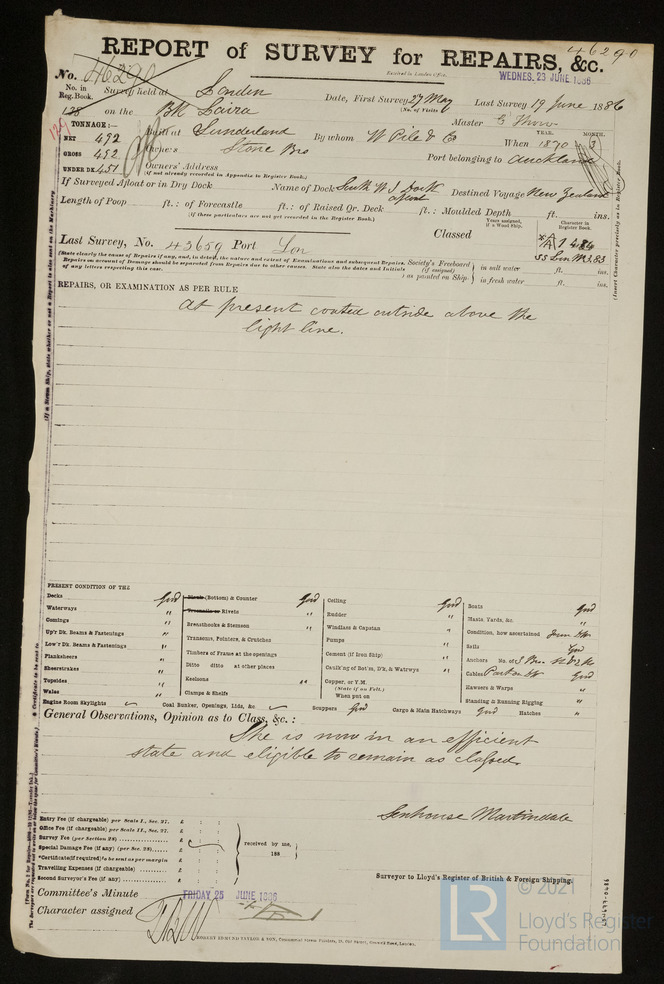 46290
REPORT of SURVEY for REPAIRS, &c.
No. 46290
WEDNES. 23 JUNE 1886
No. in Reg. Book.
Survey held at London
Date, First Survey 27 May Last Survey 19 June 1886
(No. of Visits)
138 on the Bk Laira
Master
TONNAGE:—
NET 492
GROSS 492
UNDER DK. 451
Built at Sunderland By whom W Pile & Co When 1870 3
YEAR. MONTH.
Owners Stone Bro Port belonging to Auckland
Owners' Address
(if not already recorded in Appendix to Register Book.)
If Surveyed Afloat or in Dry Dock Name of Dock South W I Dock afloat Destined Voyage New Zealand
Length of Poop ft.: of Forecastle ft.: of Raised Qr. Deck ft.: Moulded Depth ft. ins.
(If these particulars are not yet recorded in the Register Book.)
Last Survey, No. 43659 Port Lon Classed
Years assigned, if a Wood Ship.
Character in Register Book.
(State clearly the cause of Repairs if any, and, in detail, the nature and extent of Examinations and subsequent Repairs. Repairs on account of Damage should be separated from Repairs due to other causes. State also the dates and Initials of any letters respecting this case.
Society's Freeboard (if assigned) as painted on Ship
in salt water ft. ins.
in fresh water ft. ins.
REPAIRS, OR EXAMINATION AS PER RULE
At present coated outside above the
light line.
PRESENT CONDITION OF THE
Decks Good
Waterways "
Comings "
Up'r Dk. Beams & Fastenings "
Low'r Dk. Beams & Fastenings "
Planksheers "
Sheerstrakes "
Topsides "
Wales "
Engine Room Skylights
Plank (Bottom) & Counter Good
Treenails or Rivets "
Breasthooks & Stemson "
Transoms, Pointers, & Crutches
Timbers of Frame at the openings
Ditto ditto at other places
Keelsons "
Clamps & Shelfs
Coal Bunker, Openings, Lids, &c.
Ceiling Good
Rudder "
Windlass & Capstan "
Pumps "
Cement (if Iron Ship) "
Caulk'g of Bot'm, Dk, & Watrwys "
Copper, or Y.M.
(State if on Felt.)
When put on
Scuppers Good Cargo & Main Hatchways Good Hatches "
Boats Good
Masts, Yards, &c. "
Condition, how ascertained from Dk
Sails Good
Anchors No. of
Cables Good
Hawsers & Warps "
Standing & Running Rigging "
General Observations, Opinion as to Class, &c. :
She is now in an efficient
state and eligible to remain as classed.
Senhouse Martindale
Entry Fee (if chargeable) per Scale I., Sec. 27. £ : :
Office Fee (if chargeable) per Scale II., Sec. 27. £ : :
Survey Fee (per Section 28) £ : :
Special Damage Fee (if any) (per Sec. 28) £ : :
*Certificate (if required) to be sent as per margin
Travelling Expenses (if chargeable) £ : :
Second Surveyor's Fee (if any) £ : :
received by me,
188
Surveyor to Lloyd's Register of British & Foreign Shipping.
Committee's Minute FRIDAY 25 JUNE 1886
Character assigned
LR
© 2021
Lloyd's Register
Foundation